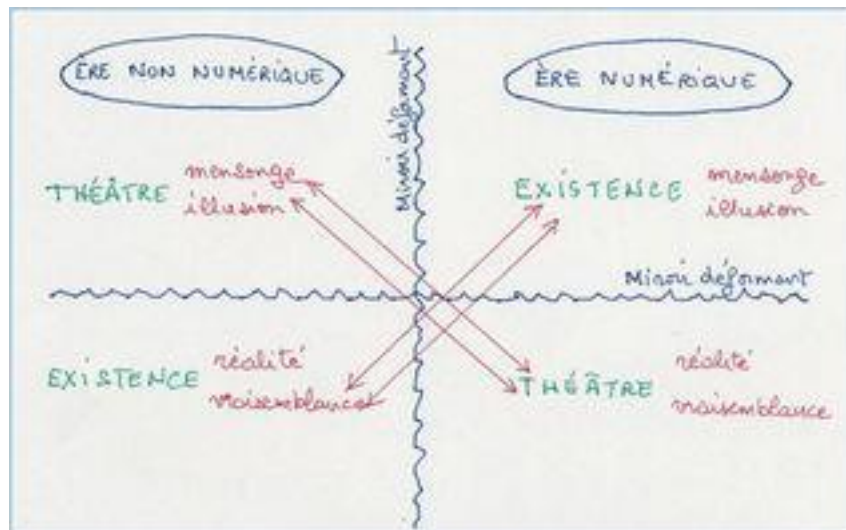 ÈRE NON NUMÉRIQUE
Miroir déformant
ÈRE NUMÉRIQUE
THÉÂTRE mensonge
illusion
EXISTENCE mensonge
illusion
Miroir déformant
EXISTENCE réalité
vraisemblance
THÉÂTRE réalité
vraisemblance